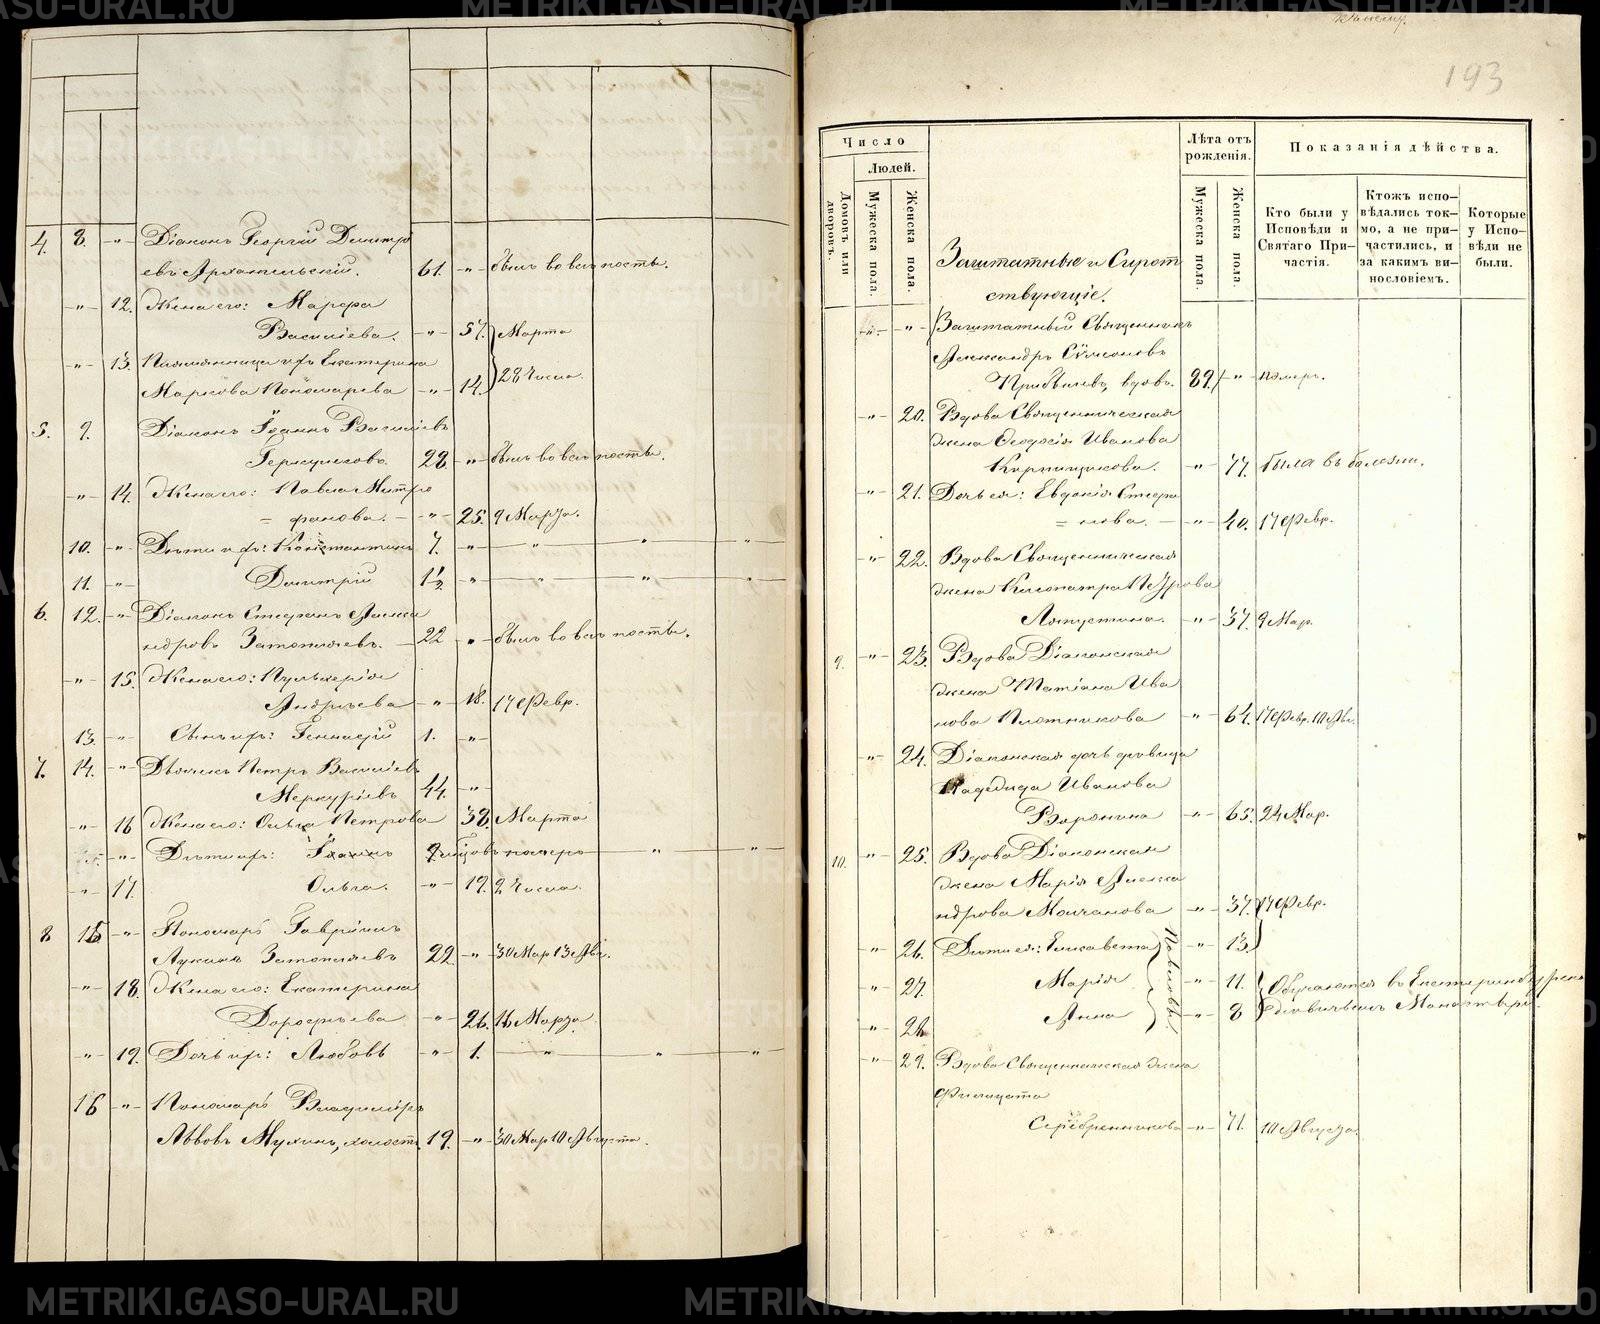 4. 8. -"- Діаконъ Георгій Димитрі
евъ Архангельскій. 61. -"- былъ во весь постъ.
-"- 12. Жена его: Марфа
Василіева. -"- 57. Марта
-"- 13. Племянница ихъ Екатерина
Маркова Пономарева -"- 14. 28 Числа.
5. 9. Діаконъ Іоаннъ Василіевъ
28. -"- былъ во весь постъ.
-"- 14. Жена его: Павла Митро
= фанова. -"- 25. 9 Марта.
10. -"- Дѣти ихъ: Константинъ 7. -"- " " "
11. -"- Димитрій 1½ " " " "
6. 12. -"- Діаконъ Стефанъ Алекса
ндровъ Затопляевъ. 22 " былъ во весь постъ.
-"- 15. Жена его: Пульхерія
Андреева -"- 18. 17 Февр.
13. -"- Сынъ ихъ: Геннадій 1. -"-
7. 14. -"- Дьячекъ Петръ Василіевъ
Меркурьевъ 44. -"-
-"- 16 Жена его: Ольга Петрова 38. Марта
-"- Дѣти ихъ: Іоаннъ померъ " "
-"- 17. Ольга. -"- 19. 2 Числа.
8 15 -"- Пономарь Гавріилъ
Лукинъ Затопляевъ 29. -"- 30 Мар 13 Авг.
-"- 18. Жена его: Екатерина
Дорофеева -"- 26. 16 Марта
-"- 19. Дочь ихъ: Любовь -"- 1. " " "
16 -"- Пономарь Владиміръ
Львовъ Мухинъ, холостъ 19. -"- 30 Мар 10 Августа.
193
Число
Людей.
Домовъ или дворовъ.
Мужеска пола.
Женска пола.
Лѣта отъ рожденія.
Мужеска пола.
Женска пола.
Показанія дѣйства.
Кто были у Исповѣди и Святаго Причастія.
Ктожъ исповѣдались токмо, а не причастились, и за какимъ винословіемъ.
Которые у Исповѣди не были.
Заштатные и Сирот
ствующіе.
-"- -"- Заштатный Священникъ
Александръ Симеоновъ
Прибылевъ, вдовъ. 89. -"- померъ.
-"- 20. Вдова Священническая
жена Ѳеодосія Иванова
Кирпищикова. -"- 77. была въ болезни.
-"- 21. Дочь ея: Евдокія Стефа
= нова. -"- 40. 17 Февр.
-"- 22. Вдова Священническая
жена Клеопатра Петрова
Ляпустина. -"- 37. 9 Мар.
9. -"- 23. Вдова Діаконская
жена Татіана Ива
нова Плотникова -"- 64. 17 Февр. 10 Авг.
-"- 24. Діаконская дочь дѣвица
Надежда Иванова
Воронина -"- 65. 24 Мар.
10. -"- 25. Вдова Діаконская
жена Марія Алекса
ндрова Молчанова -"- 37. 17 Февр.
-"- 26. Дѣти ея: Елисавета -"- 13.
-"- 27. Марія -"- 11. Обучаются въ Екатеринбургско
-"- 28. Анна -"- 8 Дѣвичьемъ Монастырѣ.
Павловы.
-"- 29. Вдова Священническая жена
Филицата
Серебренникова -"- 71. 10 Августа.